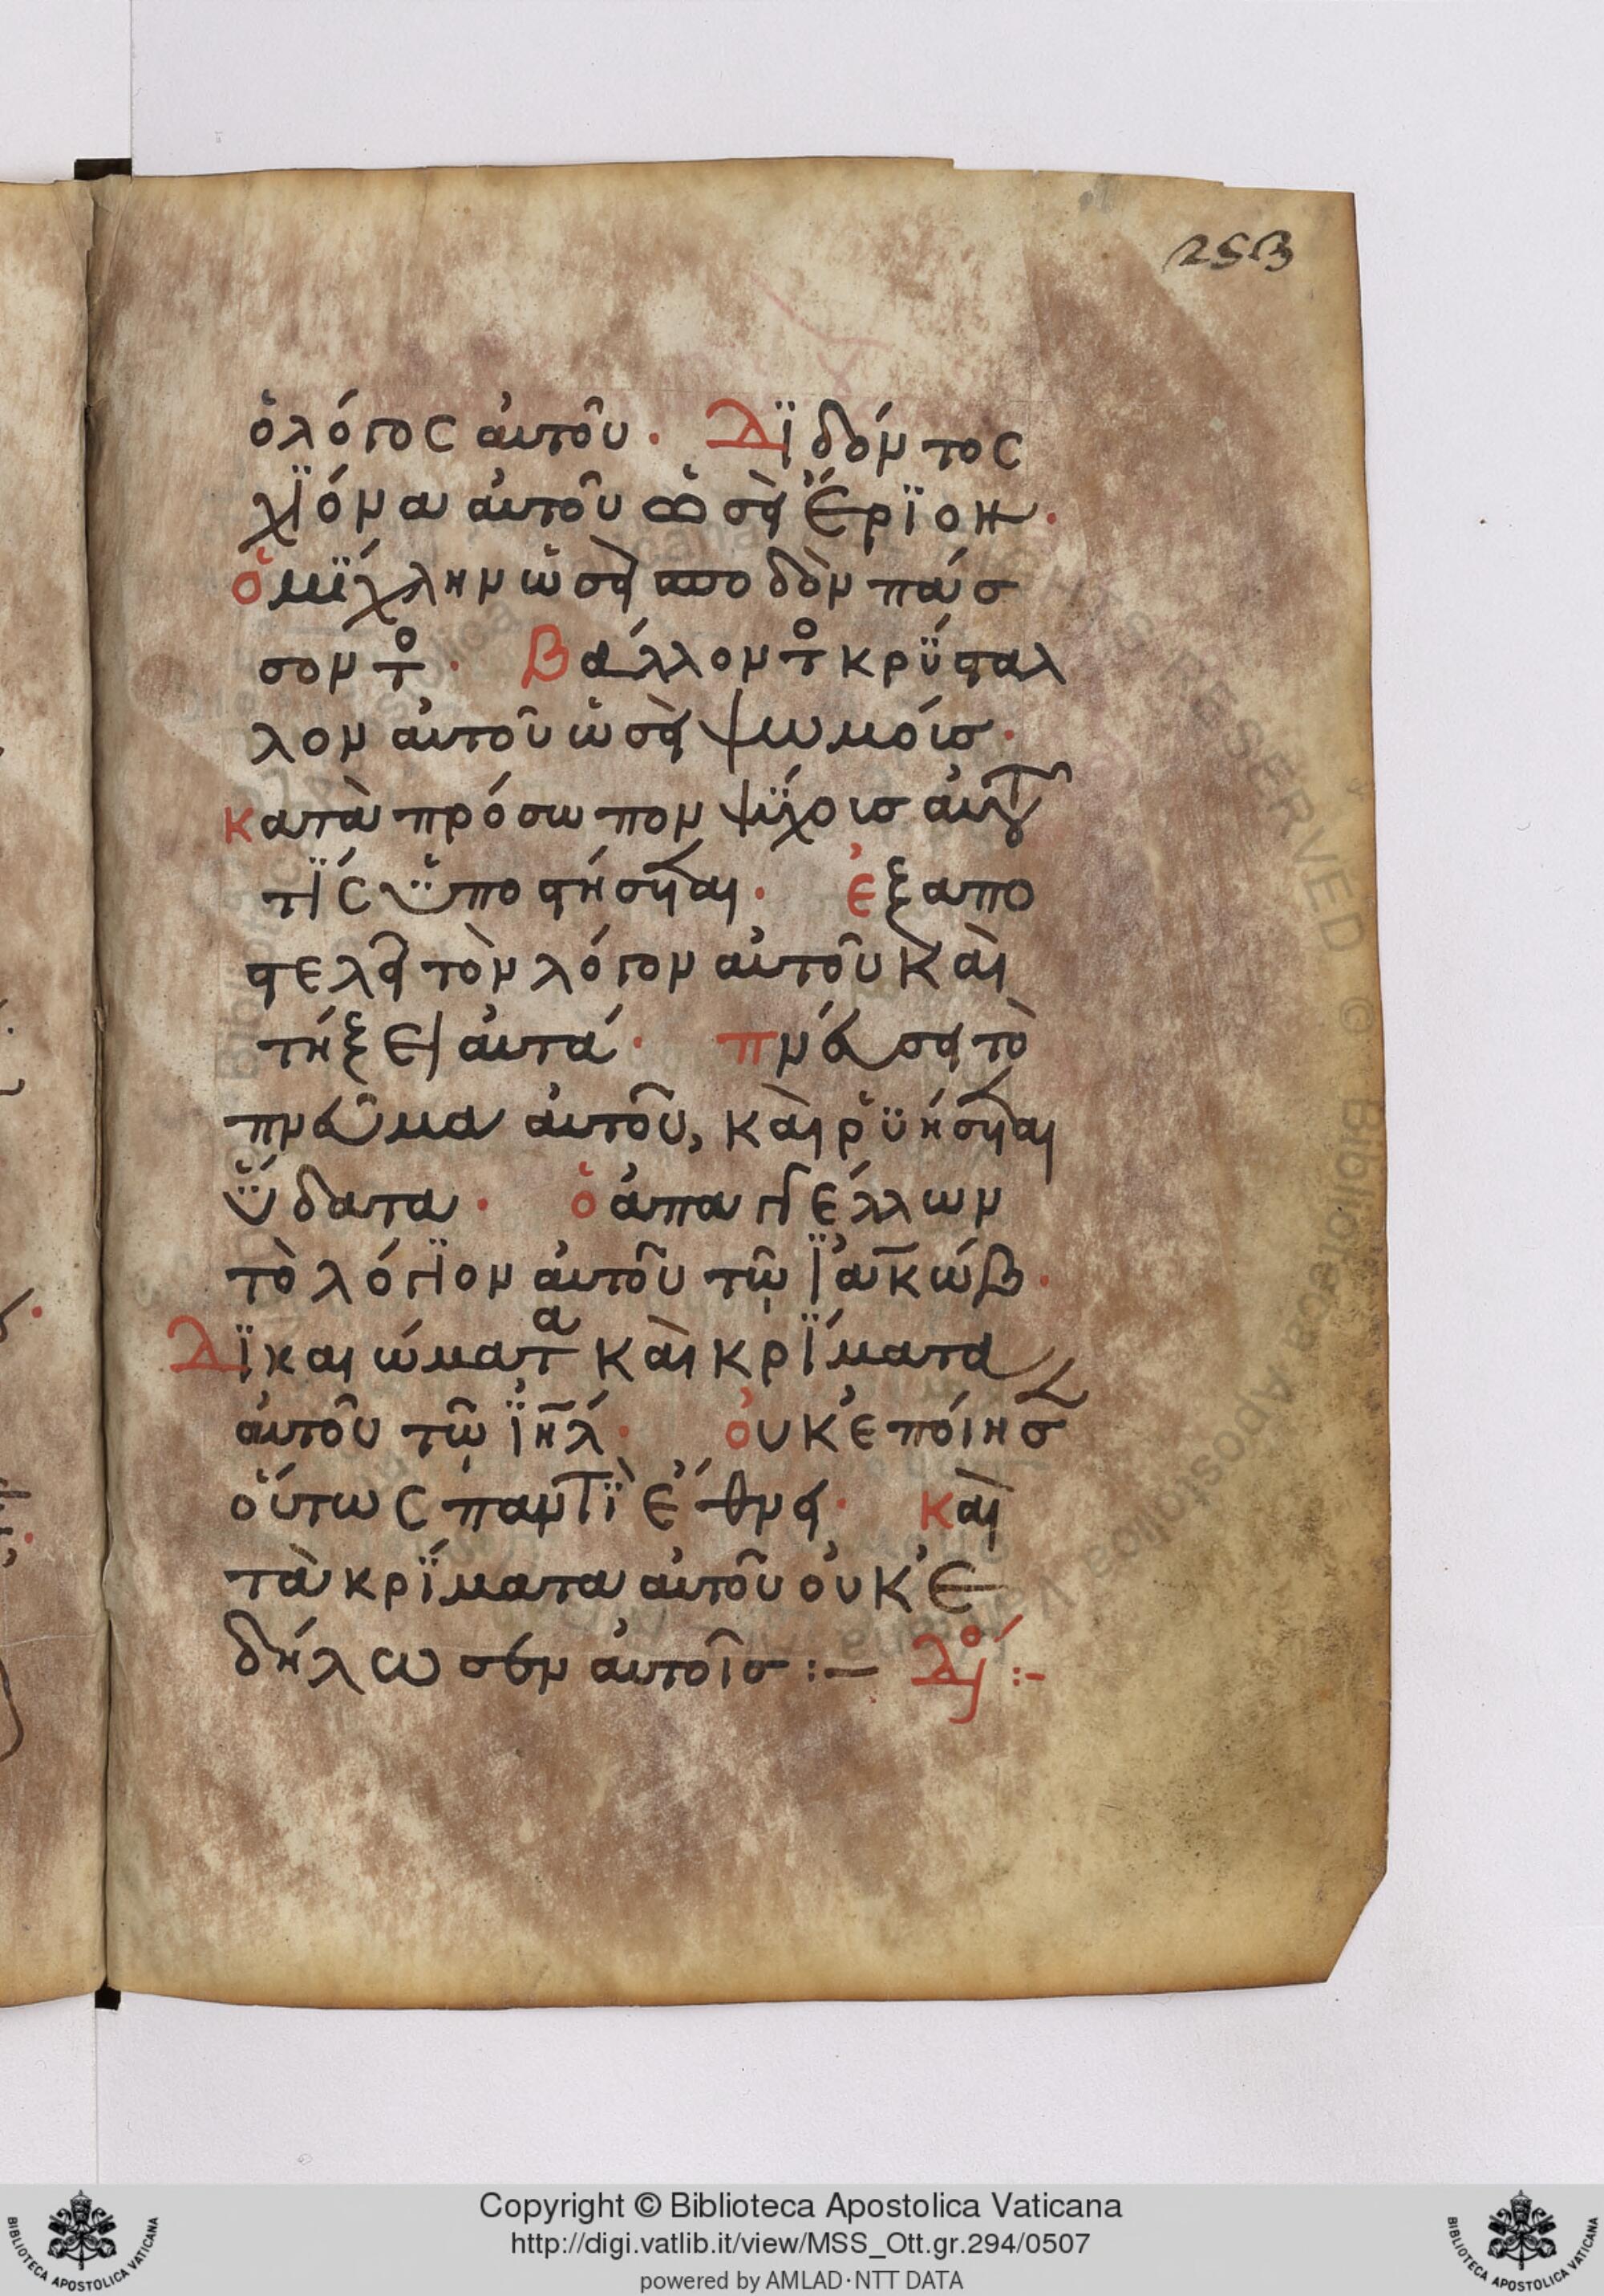 253
ὁ λόγος αὐτοῦ· Δϊδόντος
χϊόνα αὐτοῦ ὡσεὶ ἔρϊον·
ὁμίχλην ὡσεὶ σποδὸν πάσ
σοντος· Βάλλοντος κρύσταλ
λον αὐτοῦ ὡσεὶ ψωμούς·
κατὰ πρόσωπον ψύχους αὐτοῦ
τίς ὑποστήσεται· ἐξαπο
στελεῖ τὸν λόγον αὐτοῦ καὶ
τήξει αὐτά· πνεύσει τὸ
πνεῦμα αὐτοῦ, καὶ ῥϋήσεται
ὕδατα· ὁ ἀπαγγέλλων
τὸ λόγϊον αὐτοῦ τῷ Ϊακώβ·
Δϊκαιώματα καὶ κρΐματα
αὐτοῦ τῷ ϊηλ· οὐκ ἐποίησεν
οὕτως παντῒ ἔθνει· καὶ
τὰ κρΐματα αὐτοῦ οὐκ ἐ
δήλωσεν αὐτοῖς :— Δο :-
Copyright © Biblioteca Apostolica Vaticana
http://digi.vatlib.it/view/MSS_Ott.gr.294/0507
powered by AMLAD·NTT DATA
BIBLIOTECA APOSTOLICA VATICANA
BIBLIOTECA APOSTOLICA VATICANA